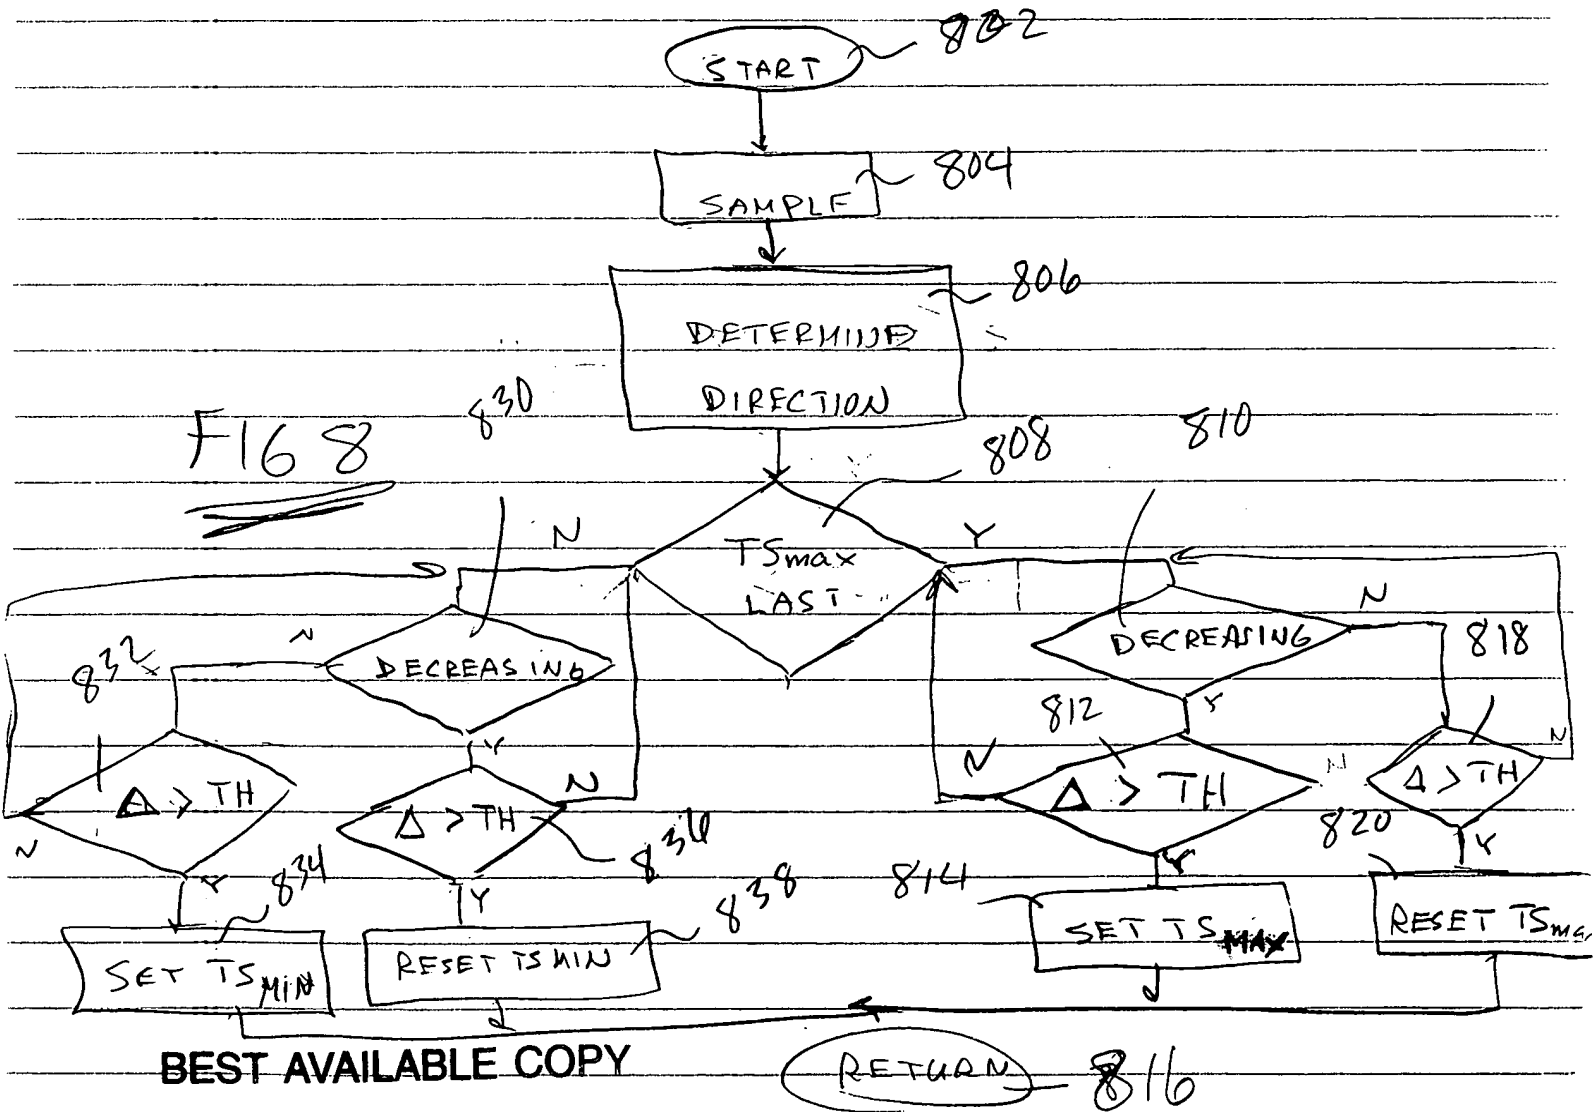 START
802
SAMPLE
804
DETERMINE
DIRECTION
806
FIG 8
830
808
810
N
TSmax
LAST
Y
N
DECREASING
DECREASING
N
832
818
Y
812
Y
Δ > TH
N
Δ > TH
N
Δ > TH
N
Δ > TH
N
N
Y
834
Y
836
838
814
Y
820
Y
SET TS MIN
RESET TSMIN
SET TS MAX
RESET TSma
BEST AVAILABLE COPY
RETURN
816